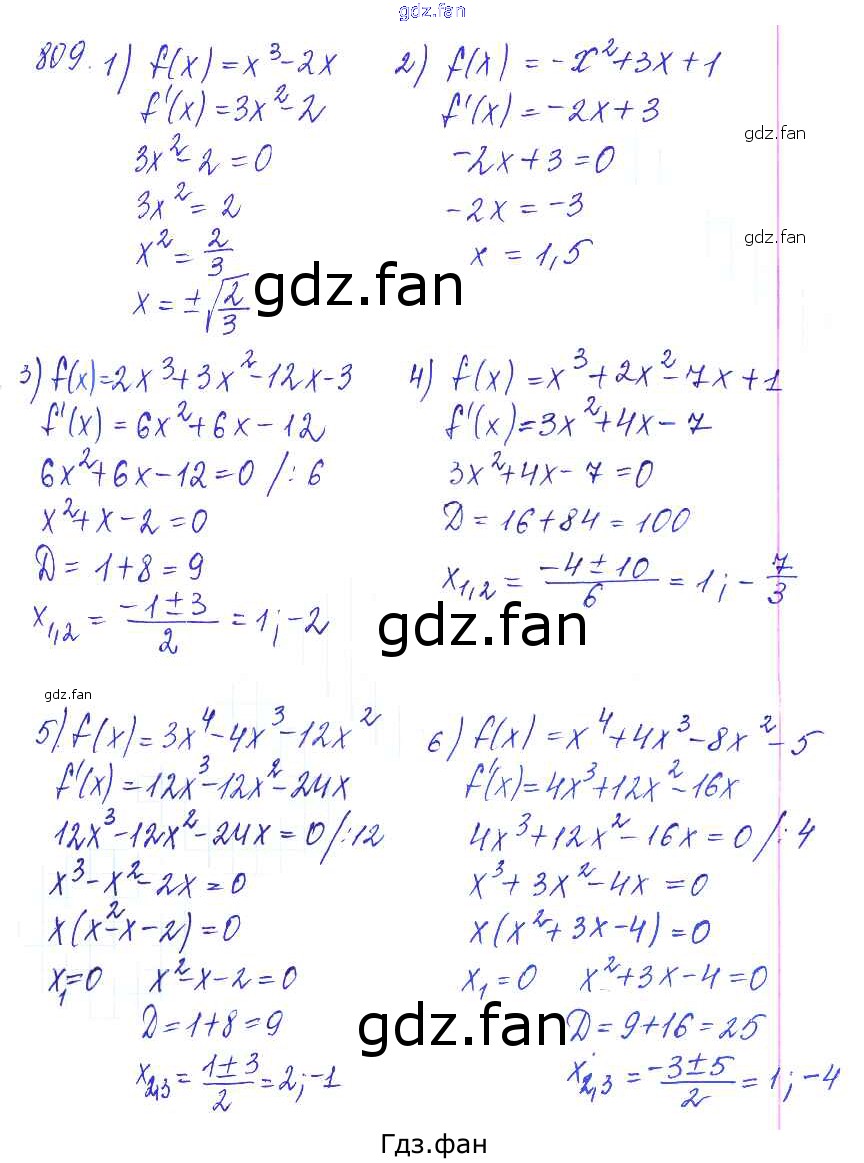 gdz.fan
809. 1) f(x) = x³ - 2x
f'(x) = 3x² - 2
3x² - 2 = 0
3x² = 2
x² = 2/3
x = ±√(2/3)
2) f(x) = -x² + 3x + 1
f'(x) = -2x + 3
-2x + 3 = 0
-2x = -3
x = 1,5
gdz.fan
gdz.fan
gdz.fan
3) f(x) = 2x³ + 3x² - 12x - 3
f'(x) = 6x² + 6x - 12
6x² + 6x - 12 = 0 /: 6
x² + x - 2 = 0
D = 1 + 8 = 9
x₁,₂ = (-1 ± 3)/2 = 1; -2
4) f(x) = x³ + 2x² - 7x + 1
f'(x) = 3x² + 4x - 7
3x² + 4x - 7 = 0
D = 16 + 84 = 100
x₁,₂ = (-4 ± 10)/6 = 1; -7/3
gdz.fan
gdz.fan
5) f(x) = 3x⁴ - 4x³ - 12x²
f'(x) = 12x³ - 12x² - 24x
12x³ - 12x² - 24x = 0 /: 12
x³ - x² - 2x = 0
x(x² - x - 2) = 0
x₁ = 0 x² - x - 2 = 0
D = 1 + 8 = 9
x₂,₃ = (1 ± 3)/2 = 2; -1
6) f(x) = x⁴ + 4x³ - 8x² - 5
f'(x) = 4x³ + 12x² - 16x
4x³ + 12x² - 16x = 0 /: 4
x³ + 3x² - 4x = 0
x(x² + 3x - 4) = 0
x₁ = 0 x² + 3x - 4 = 0
D = 9 + 16 = 25
x₂,₃ = (-3 ± 5)/2 = 1; -4
gdz.fan
Гдз.фан